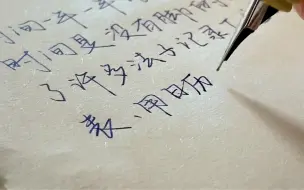 时间一年一年
时间是没有脚的
了许多法子记录了
表、用日历